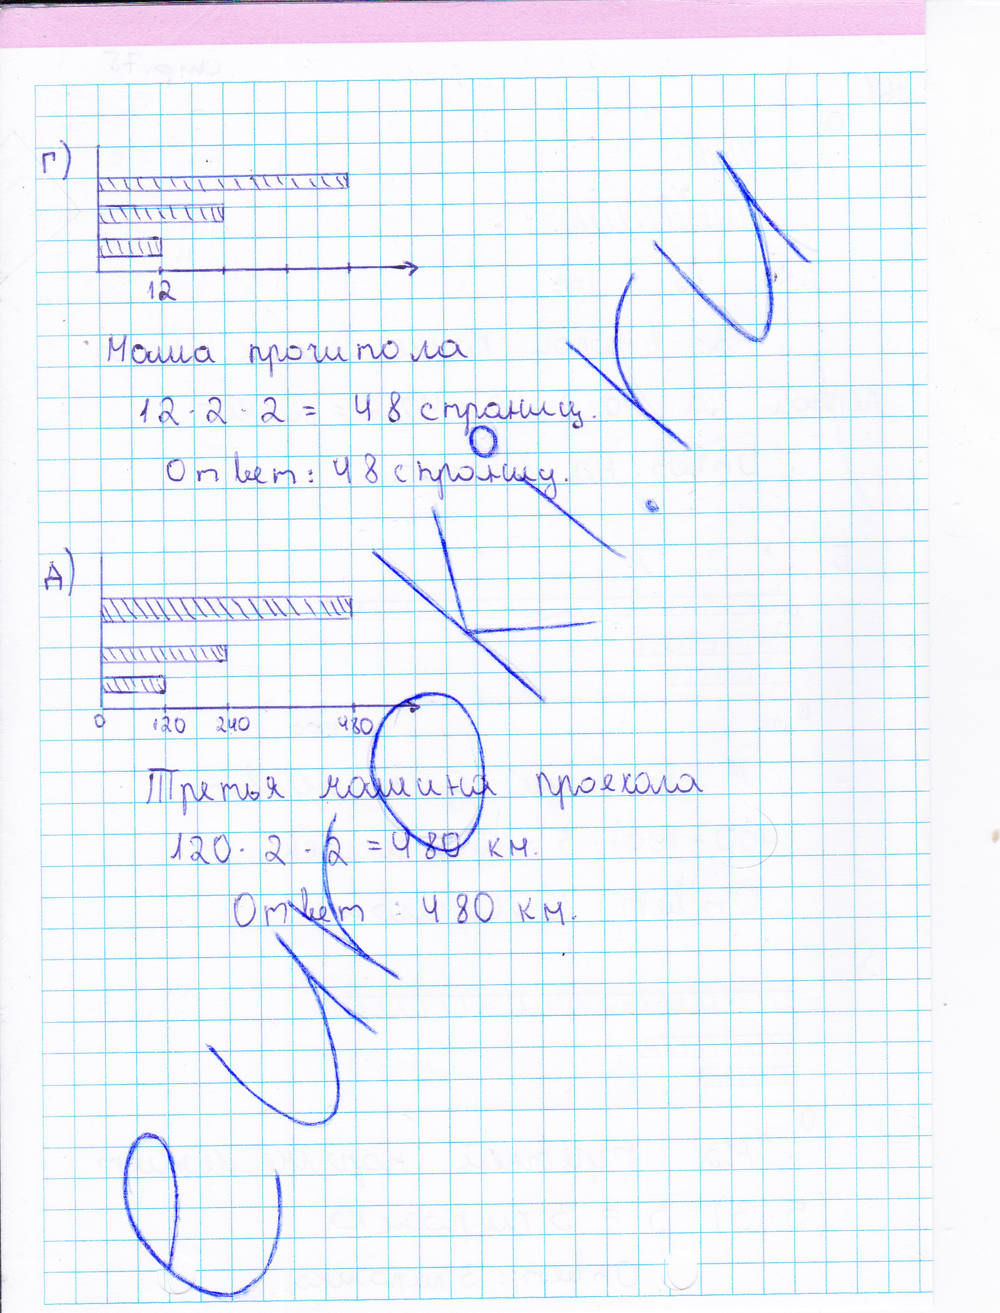 г)
12
Маша прочитала
12 · 2 · 2 = 48 страниц.
Ответ: 48 страниц.
д)
0 120 240 480
Третья машина проехала
120 · 2 · 2 = 480 км.
Ответ: 480 км.